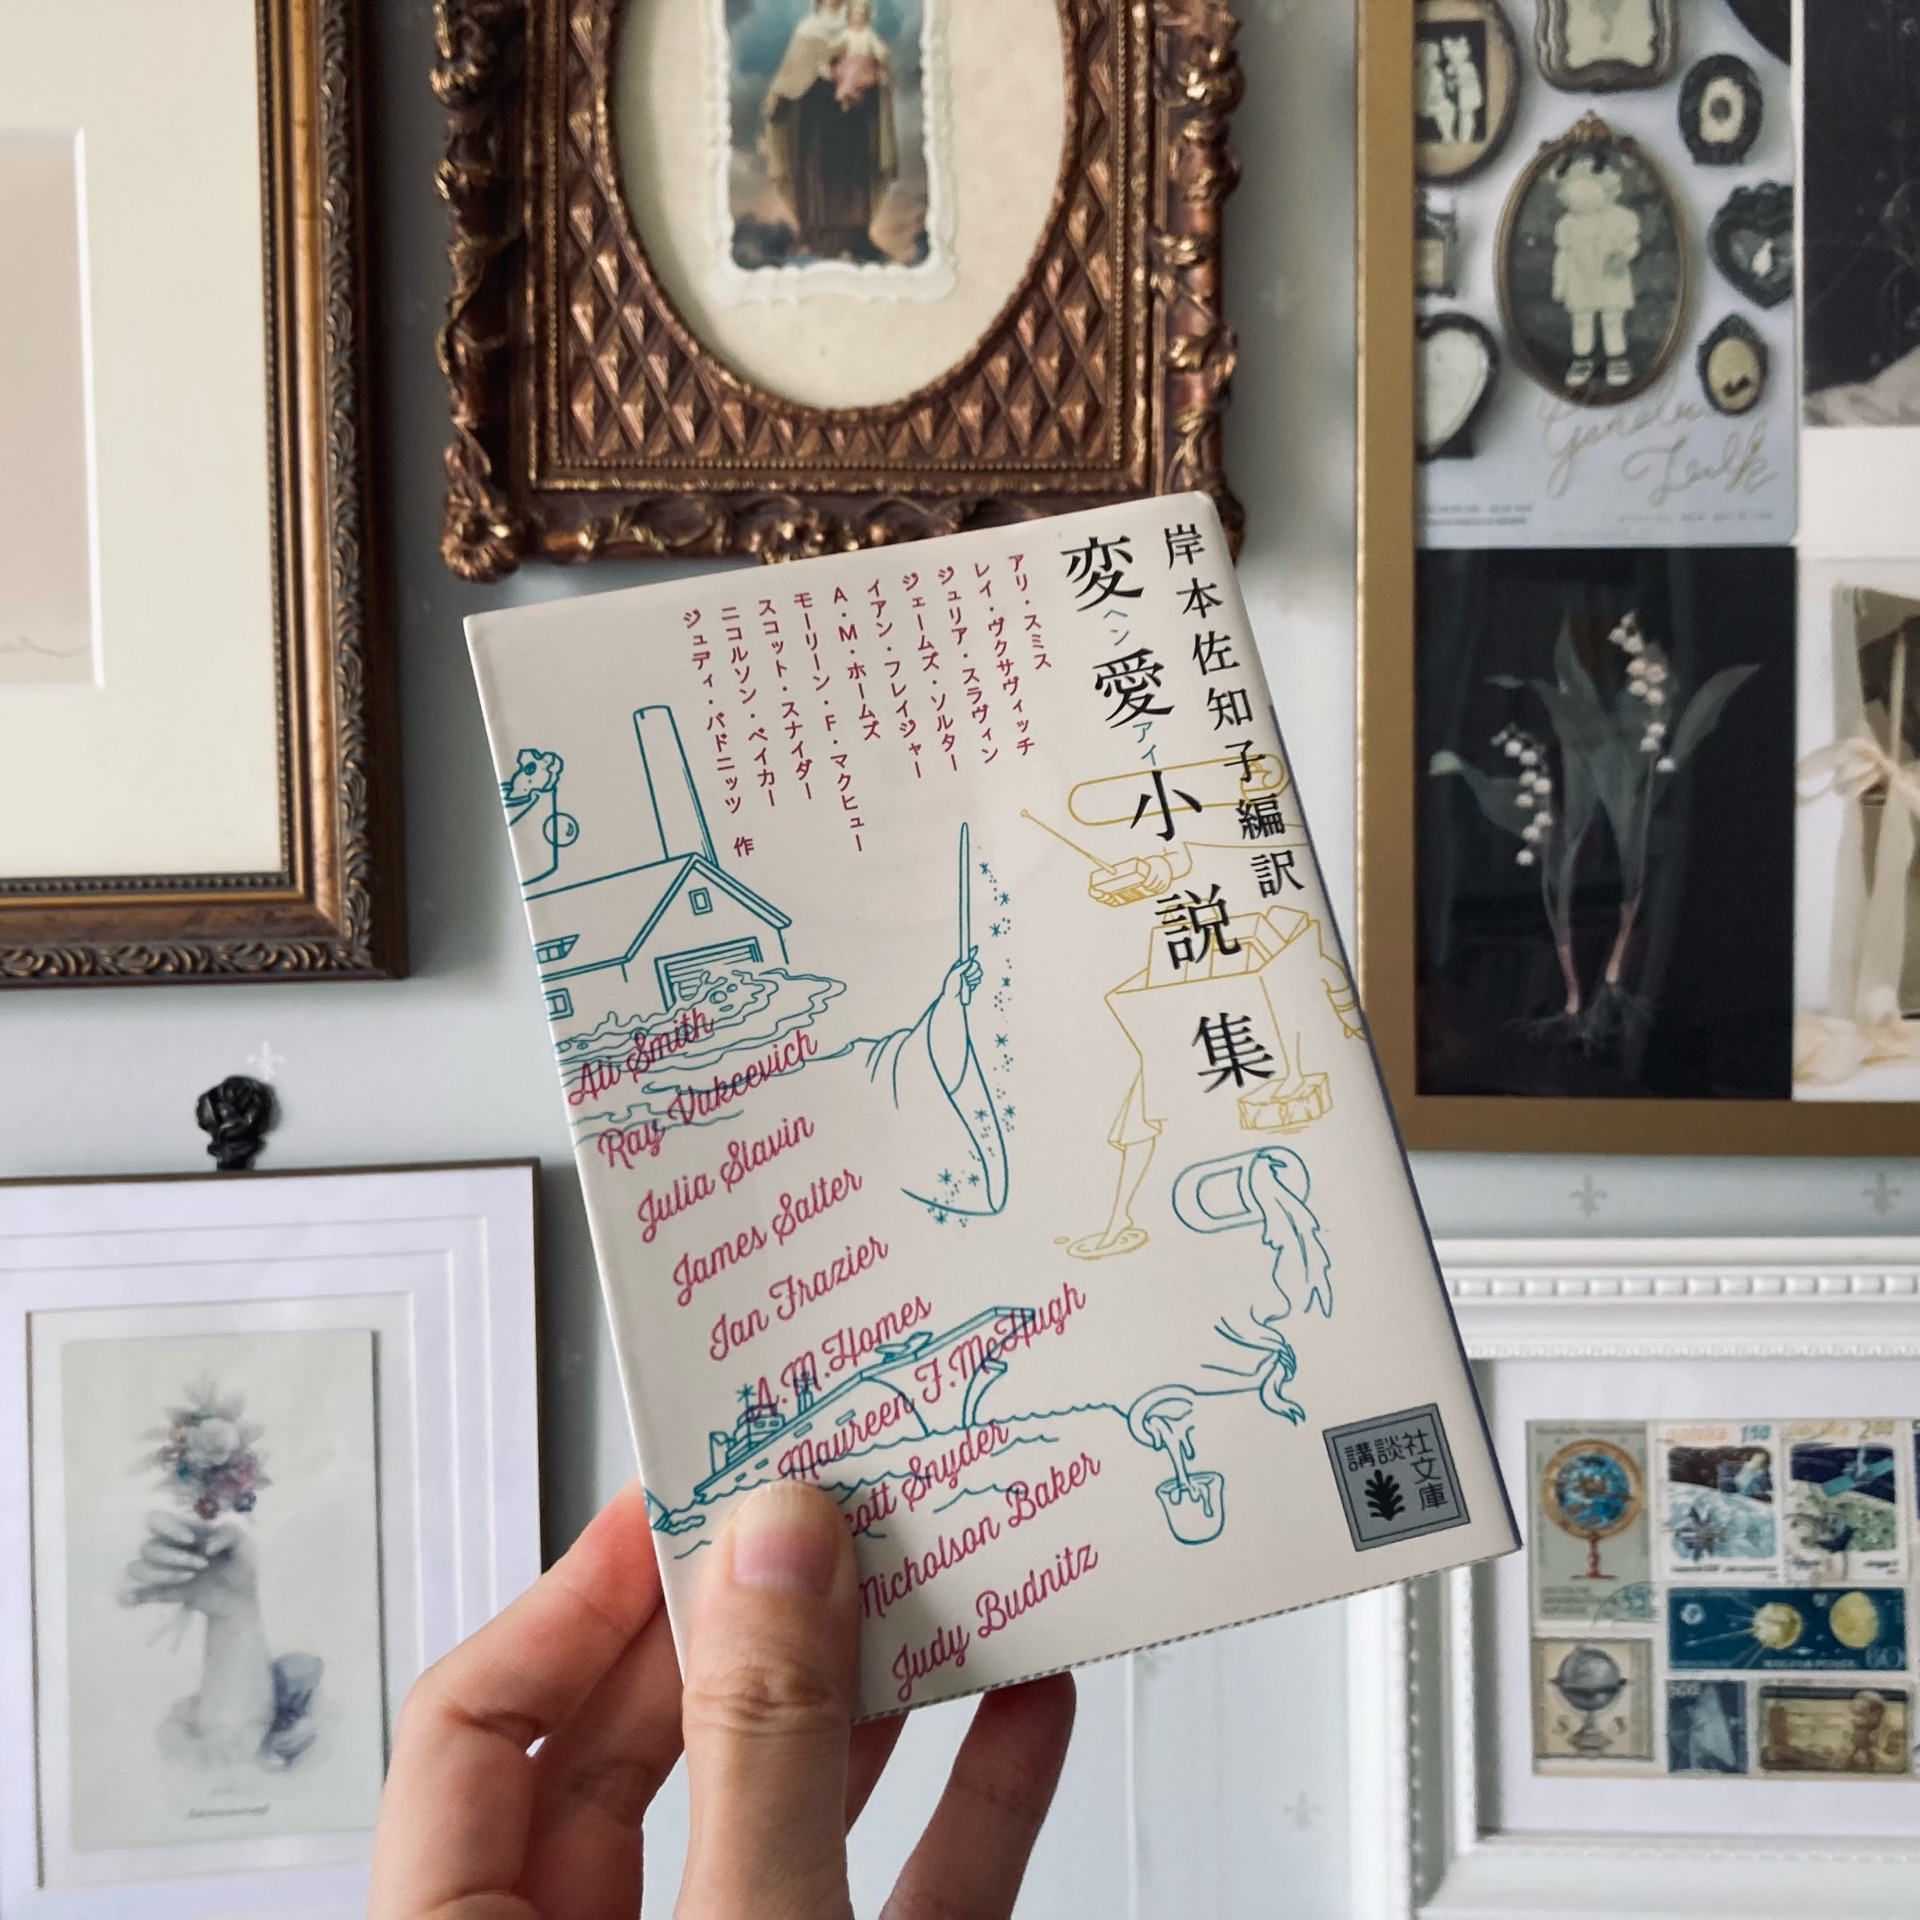 岸本佐知子 編訳
変愛小説集
ヘン
アイ
アリ・スミス
レイ・ヴクサヴィッチ
ジュリア・スラヴィン
ジェームズ・ソルター
イアン・フレイジャー
A・M・ホームズ
モーリーン・F・マクヒュー
スコット・スナイダー
ニコルソン・ベイカー
ジュディ・バドニッツ 作
Ali Smith
Ray Vukcevich
Julia Slavin
James Salter
Ian Frazier
A.M.Homes
Maureen F.McHugh
Snyder
Nicholson Baker
Judy Budnitz
講談社
文庫
polska 1.50
polska